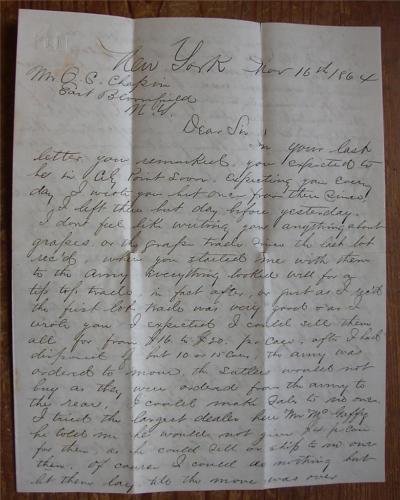 New York Nov 16th 1864
Mr O. C. Chapin
East Bloomfield
N.Y.
Dear Sir!
In your last
letter you remarked, you expected to
be in City Point soon. Expecting you every
day I wrote you but once from there since!
I left there but day before yesterday.
I dont feel like writing you anything about
grapes, or the grape trade since the last lot
rec'd, when you started me with them
to the Army Everything looked well for a
tip top trade, in fact after, or just as I
the first lot trade was very good & as I
wrote you I expected I could sell them
all for from $16 to $20. pr case, after I had
disposed of but 10 or 15 cases, the army was
ordered to move, the Sutlers would not
buy as they were ordered from the army to
the rear, I could make sale to no one
I tried the largest dealer here Mr
he told me he would not give pr can
for them as he could sell or ship to no one
them. Of course I could do nothing but
let them lay till the move was over